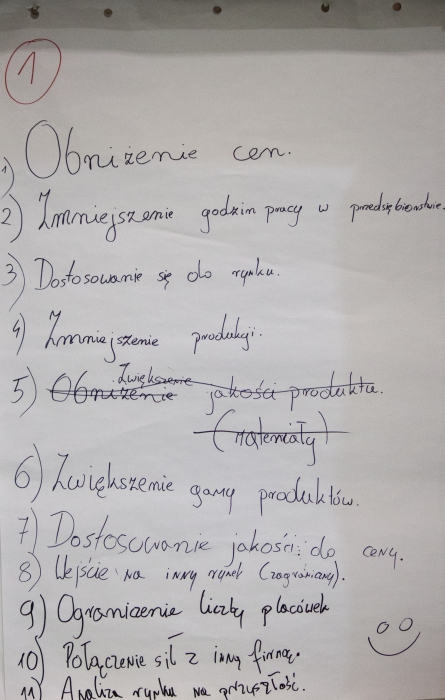 1
1) Obniżenie cen.
2) Zmniejszenie godzin pracy w przedsiębiorstwie.
3) Dostosowanie się do rynku.
4) Zmniejszenie produkcji.
Zwiększenie
5) Obniżenie jakości produktu.
(materiały)
6) Zwiększenie gamy produktów.
7) Dostosowanie jakości do ceny.
8) Wejście na inny rynek (zagraniczny).
9) Ograniczenie liczby placówek
10) Połączenie sił z inną firmą.
11) Analiza rynku na przyszłość.